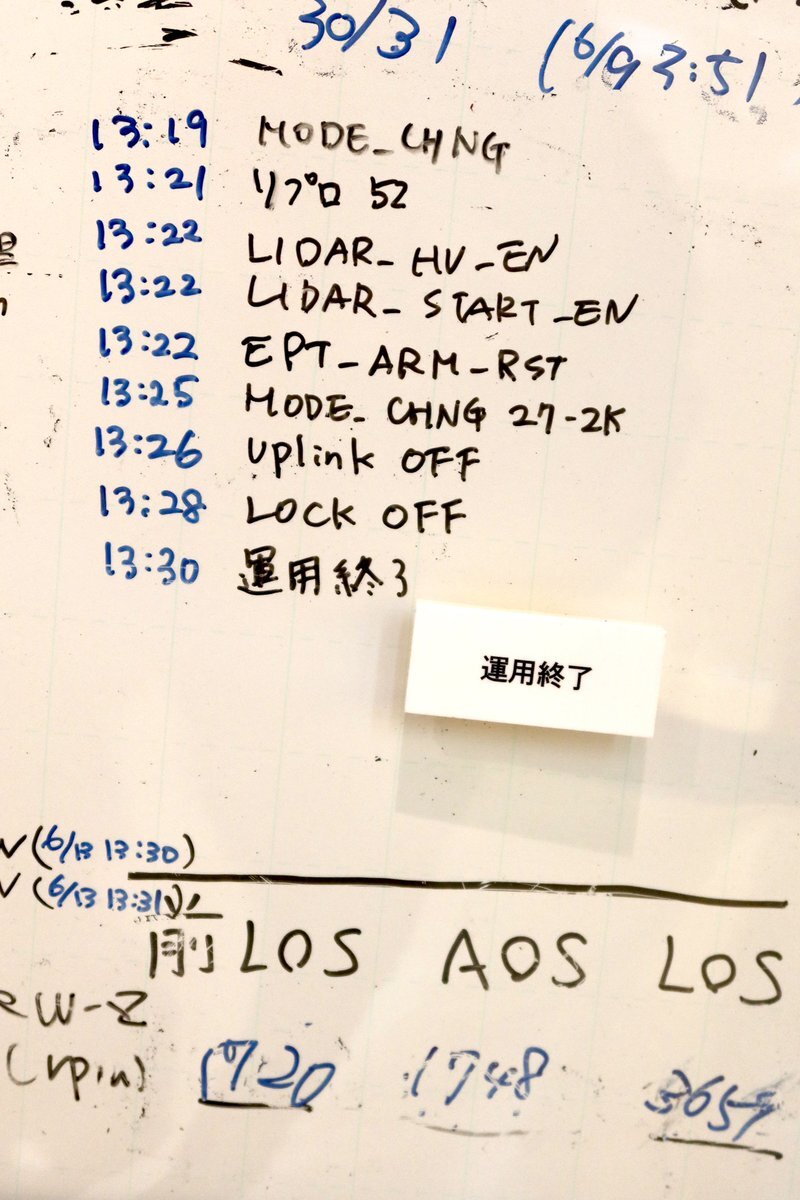 30/31 (6/9 2:51)
13:19 MODE_CHNG
13:21 リプロ 52
13:22 LIDAR_HV_EN
13:22 LIDAR_START_EN
13:22 EPT_ARM_RST
13:25 MODE_CHNG 27-2K
13:26 Uplink OFF
13:28 LOCK OFF
13:30 運用終了
運用終了
(6/13 13:30)
(6/13 13:31)
前LOS AOS LOS
RW-Z
(rpm) 1720 1748